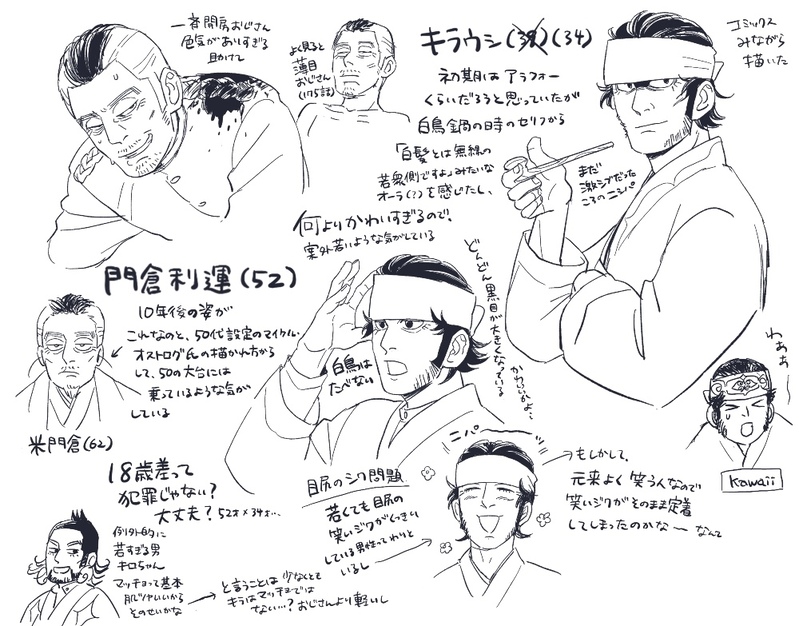 一番悶房おじさん
色気がありすぎる
助けて
よく見ると
薄目
おじさん
(175話)
キラウシ(37)(34)
初期は アラフォー
くらいだろうと思っていたが
白鳥鍋の時のセリフから
「白髪とは無縁の
若衆側ですよ」みたいな
オーラ(?)を感じたし、
何よりかわいすぎるので!
案外若いような気がしている
コミックス
みながら
描いた
まだ
激シブだった
ころのニシパ
門倉利運(52)
10年後の姿が
これなのと、50代設定のマイケル・
オストログんの描かれ方から
して、50の大台には
乗っているような気が
している
米門倉(62)
白鳥は
たべない
どんどん黒目が大きくなっている
かわいかよ…
わぁぁ
Kawaii
18歳差って
犯罪じゃない?
大丈夫? 52才×34才…
例外的に
若すぎる男
キロちゃん
マッチョって基本
肌ツヤいいから
そのせいかな
→ と言うことは 少なくとも
キラはマッチョでは
ない…? おじさんより軽いし
目尻のシワ問題
若くても目尻の
笑いジワがくっきり
している男性ってわりと
いるし
ニパー
もしかして、
元来よく笑う人なので
笑いジワがそのまま定着
してしまったのかなー なんて